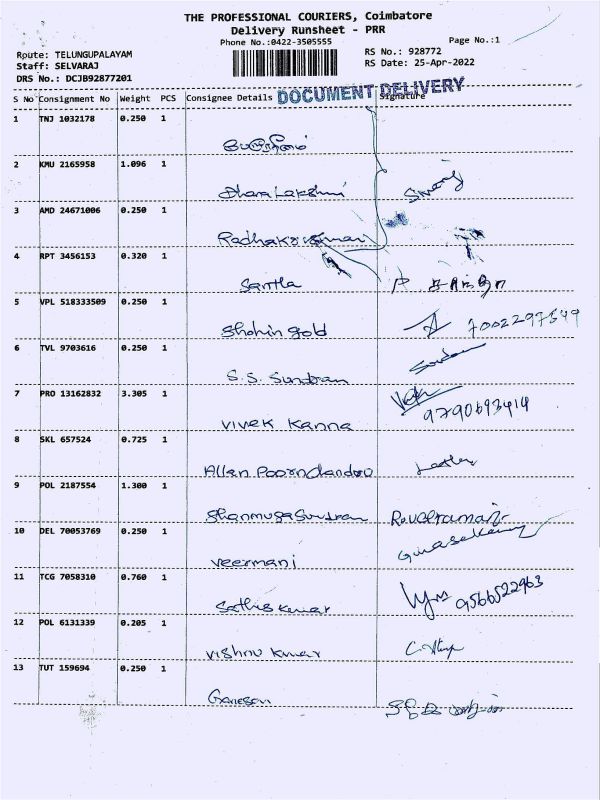 THE PROFESSIONAL COURIERS, Coimbatore
Delivery Runsheet - PRR
Phone No.:0422-3505555
Page No.:1
Route: TELUNGUPALAYAM
Staff: SELVARAJ
DRS No.: DCJB92877201
RS No.: 928772
RS Date: 25-Apr-2022
DOCUMENT DELIVERY
S No Consignment No Weight PCS Consignee Details Signature
1 TNJ 1032178 0.250 1
2 KMU 2165958 1.096 1 Dhana Lakshmi
3 AMD 24671006 0.250 1 Radhakrishnan
4 RPT 3456153 0.320 1 Santla
5 VPL 518333509 0.250 1 Shahin gold 7002297549
6 TVL 9703616 0.250 1 S.S. Sundran
7 PRO 13162832 3.305 1 Vivek Kanna 9790693414
8 SKL 657524 0.725 1 Allan
9 POL 2187554 1.300 1 Shanmuga Sundran
10 DEL 70053769 0.250 1 Veermani Gunasekaran
11 TCG 7058310 0.760 1 Sathis Kumar 9566522963
12 POL 6131339 0.205 1 Vishnu Kumar
13 TUT 159694 0.250 1 Ganesan